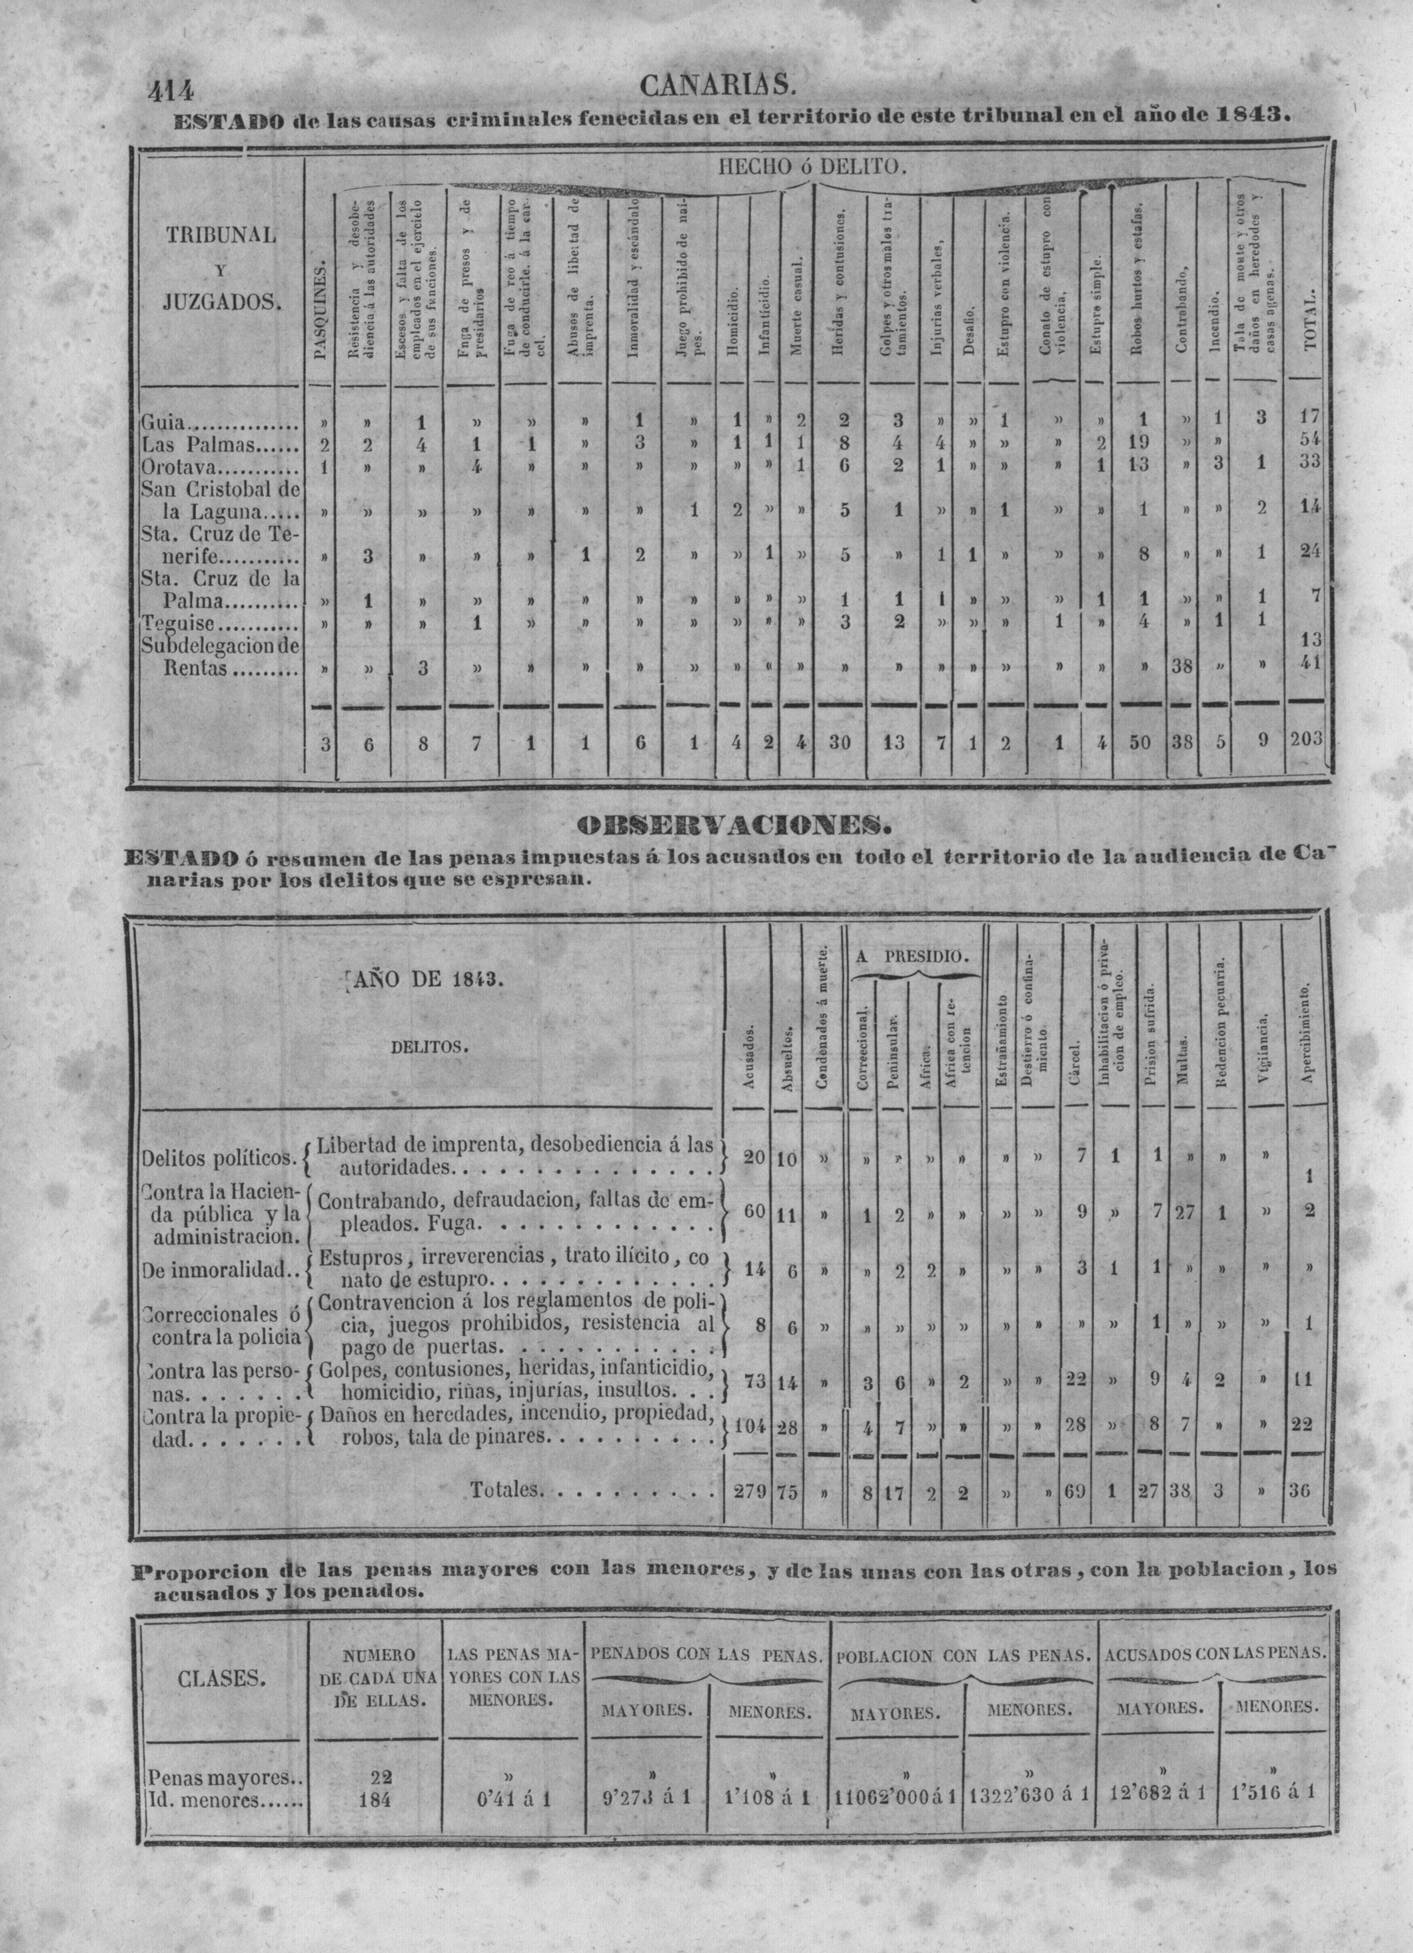 414
CANARIAS.
ESTADO de las causas criminales fenecidas en el territorio de este tribunal en el año de 1843.
HECHO ó DELITO.
TRIBUNAL
Y
JUZGADOS.
PASQUINES.
Resistencia y desobe-
diencia á las autoridades
Escesos y falta de los
empleados en el ejercicio
de sus funciones.
Fuga de presos y de
presidarios
Fuga de reo á tiempo
de conducirle. á la car-
cel.
Abusos de libertad de
imprenta.
Inmoralidad y escándalo
Juego prohibido de nai-
pes.
Homicidio.
Infanticidio.
Muerte casual.
Heridas y contusiones.
Golpes y otros malos tra-
tamientos.
Injurias verbales,
Desafio.
Estupro con violencia.
Conato de estupro con
violencia,
Estupro simple.
Robos hurtos y estafas.
Contrabando,
Incendio.
Tala de monte y otros
daños en heredodes y
casas agenas.
TOTAL.
Guia............... » » 1 » » » 1 » 1 » 2 2 3 » » 1 » » 1 » 1 3 17
Las Palmas...... 2 2 4 1 1 » 3 » 1 1 1 8 4 4 » » » 2 19 » » 54
Orotava........... 1 » » 4 » » » » » » 1 6 2 1 » » » 1 13 » 3 1 33
San Cristobal de
la Laguna..... » » » » » » » 1 2 » » 5 1 » » 1 » » 1 » » 2 14
Sta. Cruz de Te-
nerife........... » 3 » » » 1 2 » » 1 » 5 » 1 1 » » » 8 » » 1 24
Sta. Cruz de la
Palma.......... » 1 » » » » » » » » » 1 1 1 » » » 1 1 » » 1 7
Teguise........... » » » 1 » » » » » » » 3 2 » » » 1 » 4 » 1 1
13
Subdelegacion de
Rentas ......... » » 3 » » » » » » « » » » » » » » » » 38 » » 41
3 6 8 7 1 1 6 1 4 2 4 30 13 7 1 2 1 4 50 38 5 9 203
OBSERVACIONES.
ESTADO ó resumen de las penas impuestas á los acusados en todo el territorio de la audiencia de Ca-
narias por los delitos que se espresan.
AÑO DE 1843.
DELITOS.
Acusados.
Absueltos.
Condenados á muerte.
A PRESIDIO.
Correecional.
Peninsular.
Africa.
Africa con re-
tencion
Estrañamionto
Destierro ó confina-
miento
Cárcel.
Inhabilitacion ó priva-
cion de empleo.
Prision sufrida.
Multas.
Redencion pecuaria.
Vigilancia.
Apercibimiento.
Delitos políticos. { Libertad de imprenta, desobediencia á las
autoridades. . . . . . . . . . . . . . . } 20 10 » » » » » » » 7 1 1 » » » 1
Contra la Hacien-
da pública y la
administracion. { Contrabando, defraudacion, faltas de em-
pleados. Fuga. . . . . . . . . . . . . } 60 11 » 1 2 » » » » 9 » 7 27 1 » 2
De inmoralidad.. { Estupros, irreverencias, trato ilícito, co
nato de estupro. . . . . . . . . . . . . } 14 6 » » 2 2 » » » 3 1 1 » » » »
Correccionales ó
contra la policia { Contravencion á los reglamentos de poli-
cia, juegos prohibidos, resistencia al
pago de puertas. . . . . . . . . . . . } 8 6 » » » » » » » » » 1 » » » 1
Contra las perso-
nas. . . . . . . { Golpes, contusiones, heridas, infanticidio,
homicidio, riñas, injurias, insultos. . . } 73 14 » 3 6 » 2 » » 22 » 9 4 2 » 11
Contra la propie-
dad. . . . . . . { Daños en heredades, incendio, propiedad,
robos, tala de pinares. . . . . . . . . . } 104 28 » 4 7 » » » » 28 » 8 7 » » 22
Totales. . . . . . . . . . 279 75 » 8 17 2 2 » » 69 1 27 38 3 » 36
Proporcion de las penas mayores con las menores, y de las unas con las otras, con la poblacion, los
acusados y los penados.
CLASES.
NUMERO
DE CADA UNA
DE ELLAS.
LAS PENAS MA-
YORES CON LAS
MENORES.
PENADOS CON LAS PENAS.
MAYORES.
MENORES.
POBLACION CON LAS PENAS.
MAYORES.
MENORES.
ACUSADOS CON LAS PENAS.
MAYORES.
MENORES.
Penas mayores.. 22 » » » » » » »
Id. menores...... 184 0'41 á 1 9'273 á 1 1'108 á 1 11062'000 á 1 1322'630 á 1 12'682 á 1 1'516 á 1